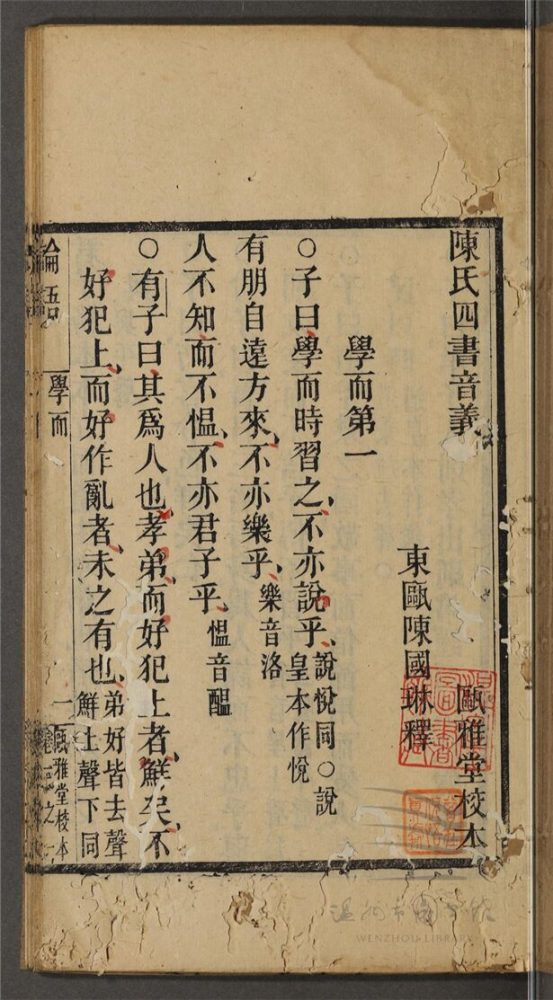 陳氏四書音義　甌雅堂校本
東甌陳國琳釋
學而第一
○子曰學而時習之、不亦說乎、說悅同○說皇本作悅
有朋自遠方來、不亦樂乎、樂音洛
人不知而不慍、不亦君子乎、慍音醞
○有子曰其爲人也、孝弟、而好犯上者、鮮矣、不
好犯上、而好作亂者、未之有也、弟好皆去聲鮮上聲下同
論語　學而　一　甌雅堂校本
WENZHOU LIBRARY